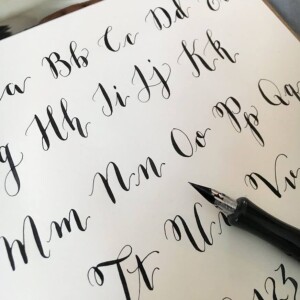 a Bb Cc Dd
g Hh Ii Jj Kk
Mm Nn Oo Pp Qq
Tt Uu Vv
123